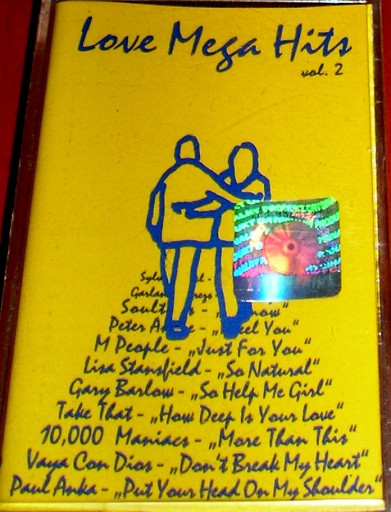 Love Mega Hits
vol. 2
Soult
Peter An eel You“
M People - „Just For You“
Lisa Stansfield - „So Natural“
Gary Barlow - „So Help Me Girl“
Take That - „How Deep Is Your Love“
10,000 Maniacs - „More Than This“
Vaya Con Dios - „Don't Break My Heart“
Paul Anka - „Put Your Head On My Shoulder“